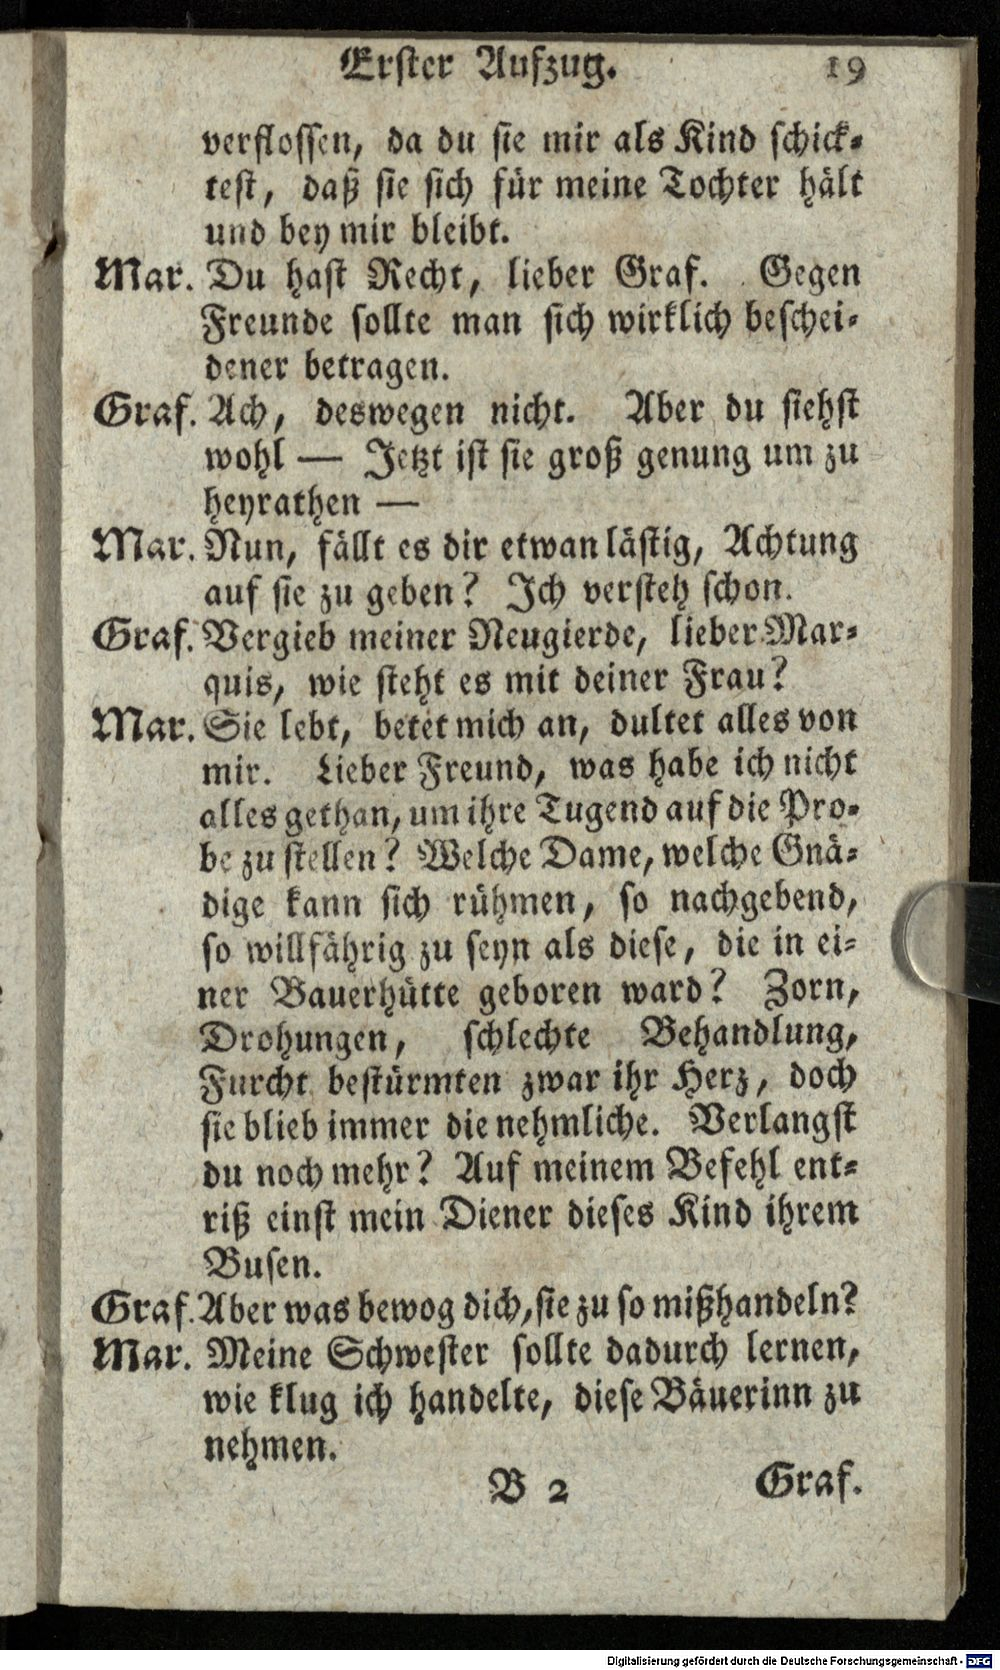 Erster Aufzug. 19
verflossen, da du sie mir als Kind schick-
test, daß sie sich für meine Tochter hält
und bey mir bleibt.
Mar. Du hast Recht, lieber Graf. Gegen
Freunde sollte man sich wirklich beschei-
dener betragen.
Graf. Ach, deswegen nicht. Aber du siehst
wohl — Jetzt ist sie groß genung um zu
heyrathen —
Mar. Nun, fällt es dir etwan lästig, Achtung
auf sie zu geben? Ich versteh schon.
Graf. Vergieb meiner Neugierde, lieber Mar-
quis, wie steht es mit deiner Frau?
Mar. Sie lebt, betet mich an, dultet alles von
mir. Lieber Freund, was habe ich nicht
alles gethan, um ihre Tugend auf die Pro-
be zu stellen? Welche Dame, welche Gnä-
dige kann sich rühmen, so nachgebend,
so willfährig zu seyn als diese, die in ei-
ner Bauerhütte geboren ward? Zorn,
Drohungen, schlechte Behandlung,
Furcht bestürmten zwar ihr Herz, doch
sie blieb immer die nehmliche. Verlangst
du noch mehr? Auf meinem Befehl ent-
riß einst mein Diener dieses Kind ihrem
Busen.
Graf. Aber was bewog dich, sie zu so mißhandeln?
Mar. Meine Schwester sollte dadurch lernen,
wie klug ich handelte, diese Bäuerinn zu
nehmen.
B 2 Graf.
Digitalisierung gefördert durch die Deutsche Forschungsgemeinschaft - DFG